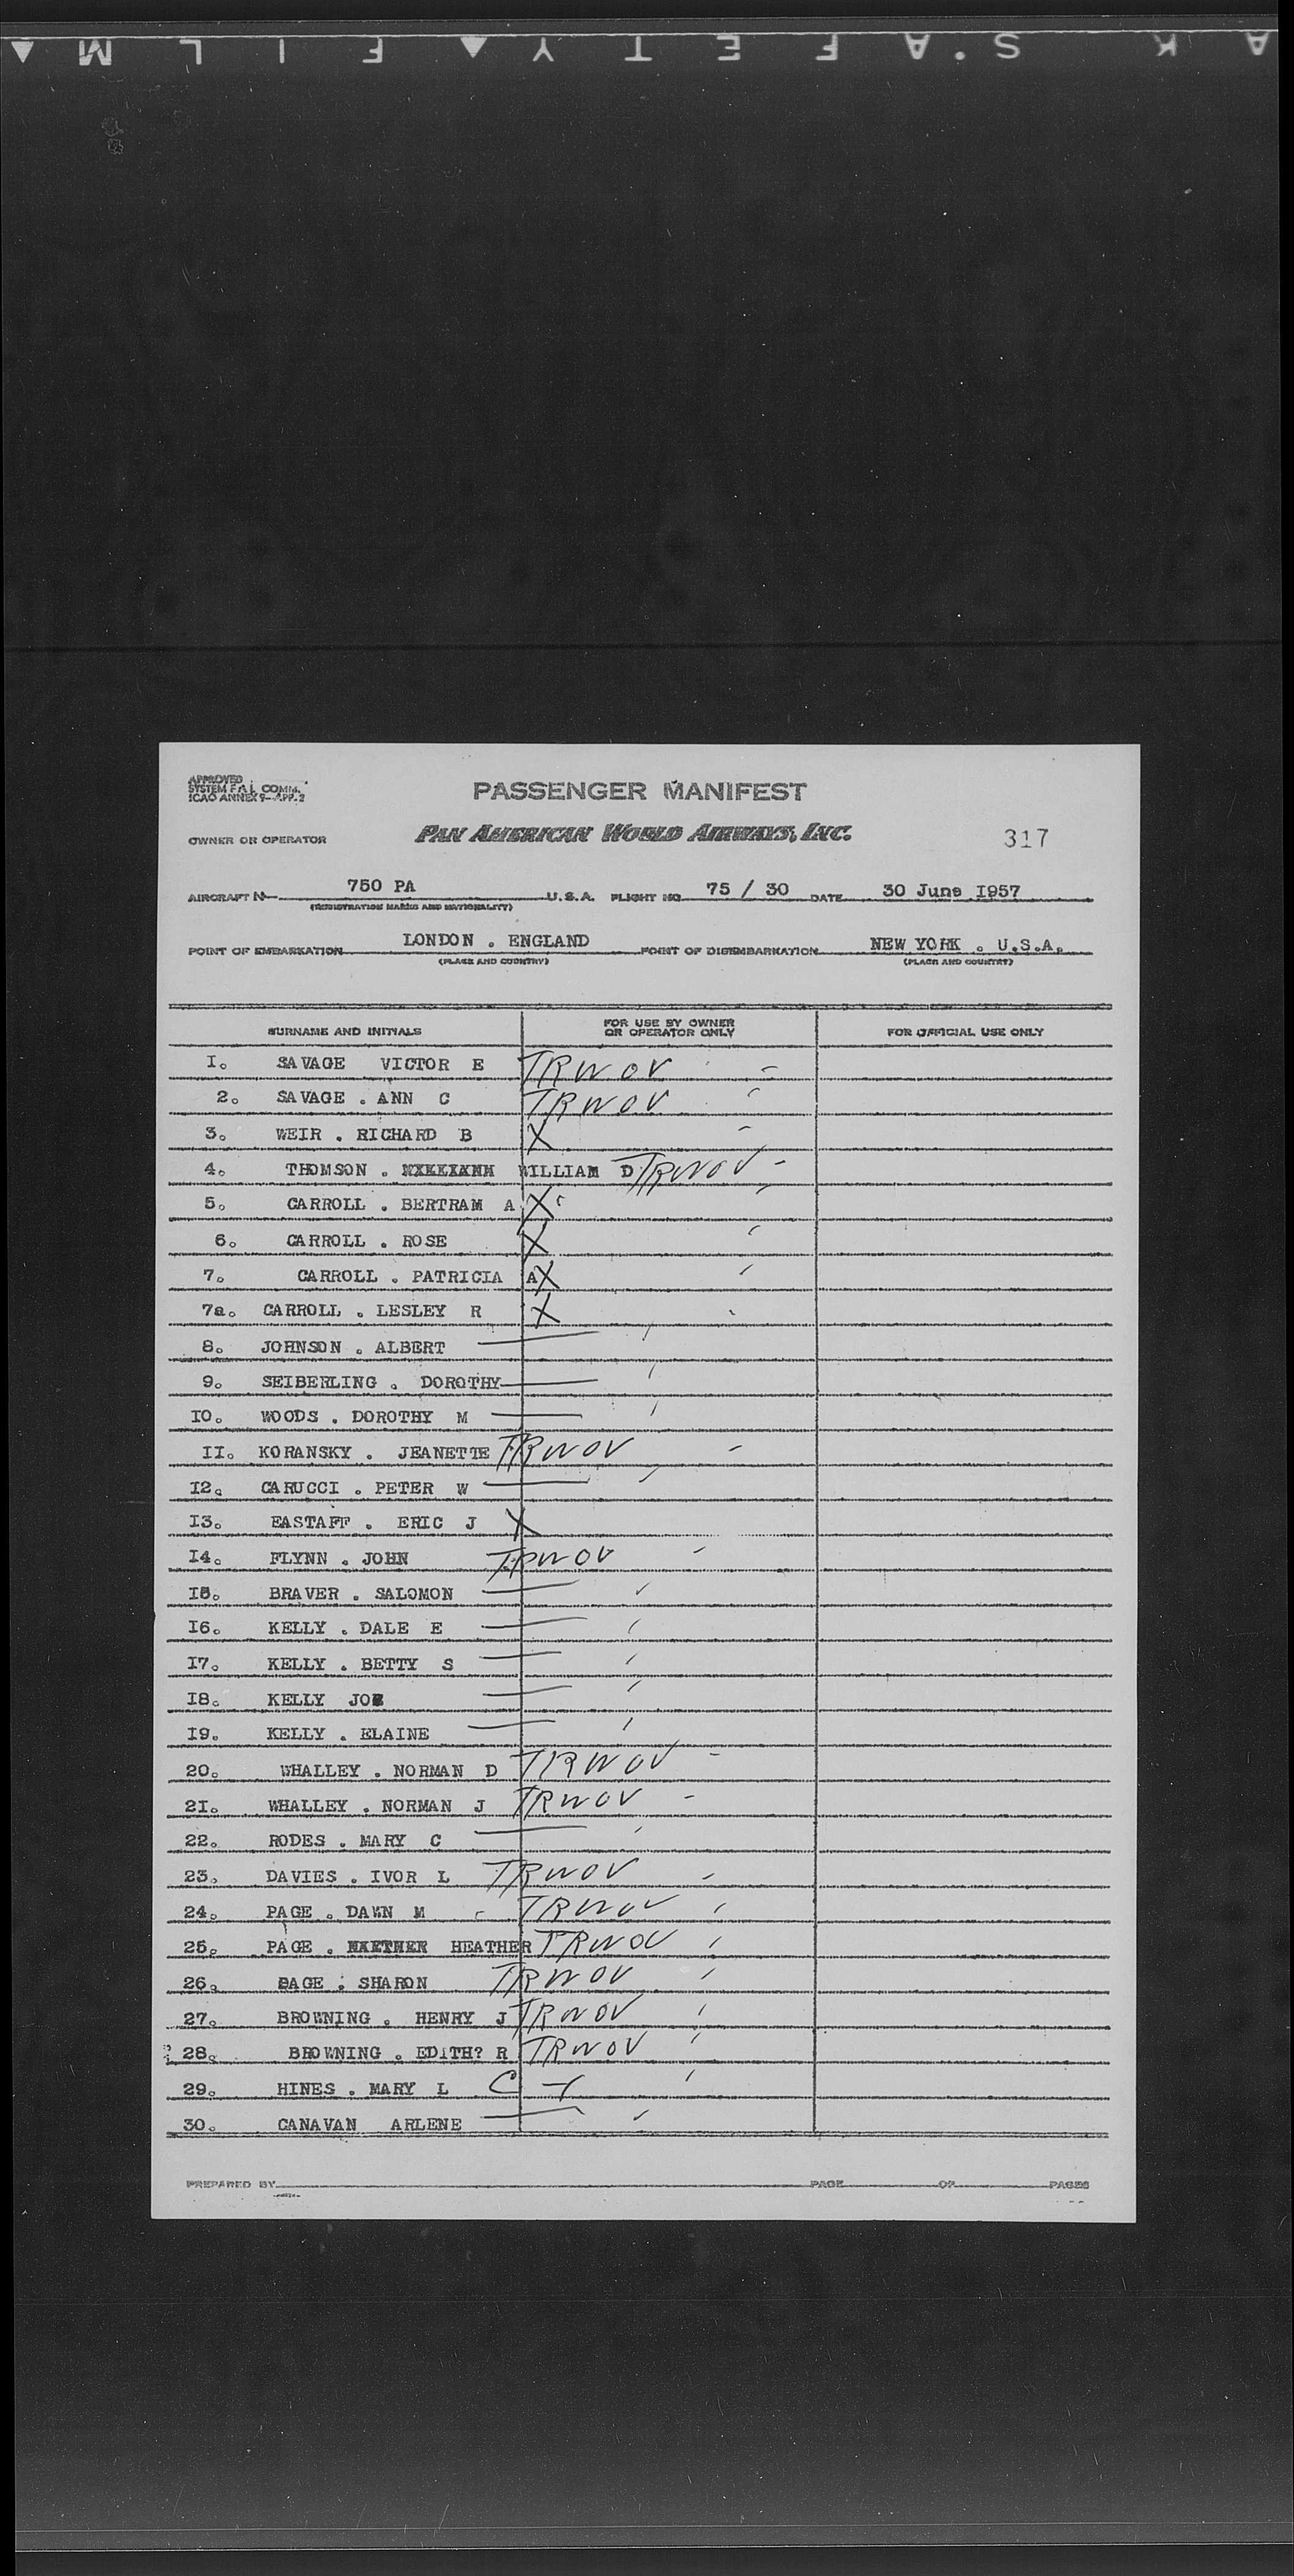 A K S.A F E T Y ▲ F I L M ▲
APPROVED
SYSTEM F A L COMM.
ICAO ANNEX 9-APP. 2
PASSENGER MANIFEST
OWNER OR OPERATOR PAN AMERICAN WORLD AIRWAYS, INC. 317
AIRCRAFT N 750 PA U.S.A. FLIGHT NO. 75 / 30 DATE 30 June I957
(REGISTRATION MARKS AND NATIONALITY)
POINT OF EMBARKATION LONDON . ENGLAND POINT OF DISEMBARKATION NEW YORK . U.S.A.
(PLACE AND COUNTRY) (PLACE AND COUNTRY)
SURNAME AND INITIALS FOR USE BY OWNER OR OPERATOR ONLY FOR OFFICIAL USE ONLY
I. SAVAGE VICTOR E TRWOV
2. SAVAGE . ANN C TRWOV
3. WEIR . RICHARD B X
4. THOMSON . WILLIAM D TRWOV
5. CARROLL . BERTRAM A X
6. CARROLL . ROSE X
7. CARROLL . PATRICIA A X
7a. CARROLL . LESLEY R X
8. JOHNSON . ALBERT
9. SEIBERLING . DOROTHY
I0. WOODS . DOROTHY M
II. KORANSKY . JEANETTE TRWOV
I2. CARUCCI . PETER W
I3. EASTAFF . ERIC J X
I4. FLYNN . JOHN TRWOV
I5. BRAVER . SALOMON
I6. KELLY . DALE E
I7. KELLY . BETTY S
I8. KELLY JOE
I9. KELLY . ELAINE
20. WHALLEY . NORMAN D TRWOV
2I. WHALLEY . NORMAN J TRWOV
22. RODES . MARY C
23. DAVIES . IVOR L TRWOV
24. PAGE . DAWN M TRWOV
25. PAGE . HEATHER TRWOV
26. PAGE . SHARON TRWOV
27. BROWNING . HENRY J TRWOV
28. BROWNING . EDITH? R TRWOV
29. HINES . MARY L C
30. CANAVAN ARLENE
PREPARED BY PAGE OF PAGES